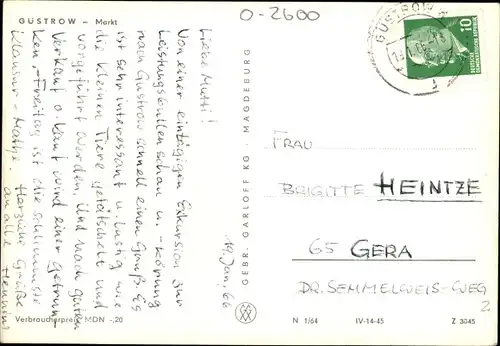 GÜSTROW – Markt
O-2600
GÜSTROW
10
DEUTSCHE DEMOKRATISCHE REPUBLIK
Liebe Mutti!
Von einer eintägigen Exkursion zur
Leistungsbullenschau u. -körung
nach Güstrow schnell einen Gruß. Es
ist sehr interessant u. lustig wie
die kleinen Tiere getätschelt und
vorgeführt werden. Und nach gutem
Verkauf o. kauf wird einer getrun-
ken. – Freitag ist die schlimmste
Klausur – Mathe. Herzliche Grüße
an alle Henning
19. Jan. 66
GEBR. GARLOFF KG · MAGDEBURG
FRAU
BRIGITTE HEINTZE
65 GERA
DR. SEMMELWEIS-WEG
2
Verbraucherpreis MDN -,20
N 1/64 IV-14-45 Z 3045